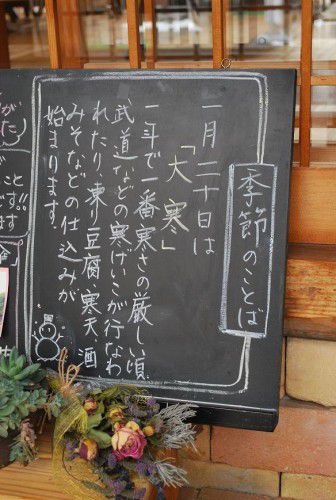 季節のことば
一月二十日は
「大寒」
一年で一番寒さの厳しい頃。
武道などの寒げいこが行なわ
れたり、凍り豆腐、寒天、酒、
みそなどの仕込みが
始まります。